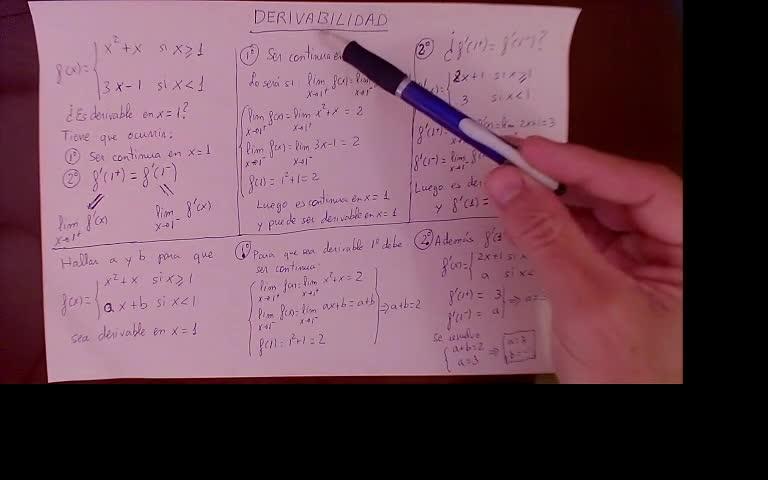 DERIVABILIDAD
f(x)= { x² + x si x ⩾ 1
3x - 1 si x < 1
¿Es derivable en x = 1?
Tiene que ocurrir:
1º Ser continua en x = 1
2º f'(1⁺) = f'(1⁻)
lim f'(x) lim f'(x)
x→1⁺ x→1⁻
1º Ser continua en
Lo será si: lim f(x) = lim
x→1⁺ x→1⁻
lim f(x) = lim x² + x = 2
x→1⁺ x→1⁺
lim f(x) = lim 3x - 1 = 2
x→1⁻ x→1⁻
f(1) = 1² + 1 = 2
Luego es continua en x = 1
y puede ser derivable en x = 1
2º ¿f'(1⁺) = f'(1⁻)?
2x + 1 si x ⩾ 1
3 si x < 1
f'(1⁺) = lim 2x+1 = 3
f'(1⁻) = lim
x→1⁻
Luego es
y f'(1) =
Hallar a y b para que
f(x)= { x² + x si x ⩾ 1
ax + b si x < 1
sea derivable en x = 1
1º Para que sea derivable 1º debe
ser continua:
lim f(x) = lim x² + x = 2
x→1⁺ x→1⁺
lim f(x) = lim ax + b = a + b ⇒ a + b = 2
x→1⁻ x→1⁻
f(1) = 1² + 1 = 2
2º Además
f'(x) = { 2x + 1 si x
a si x <
f'(1⁺) = 3
f'(1⁻) = a ⇒ a =
se
{ a + b = 2
a = 3 ⇒ a = 3
b =